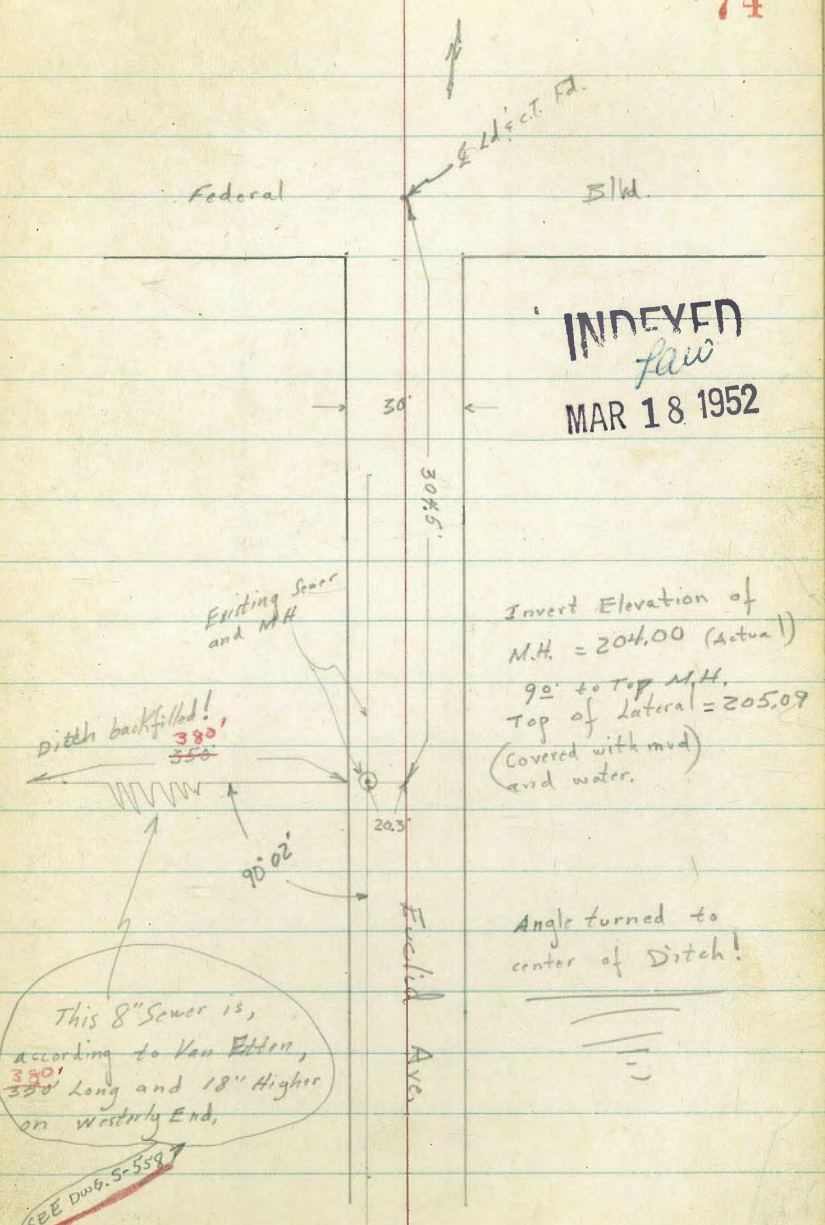 74
Ld & C.T. Fd.
Federal Blvd.
INDEXED
Law
MAR 18 1952
30'
304.5'
Existing Sewer
and M.H
Invert Elevation of
M.H. = 204.00 (Actual)
9.0' to Top M.H.
Top of Lateral = 205.09
(Covered with mud)
and water.
Ditch backfilled!
380'
350'
20.3'
90°02'
Euclid Ave.
Angle turned to
center of Ditch!
This 8" Sewer is,
according to Van Etten,
380'
350' Long and 18" Higher
on Westerly End.
SEE DWG. S-558